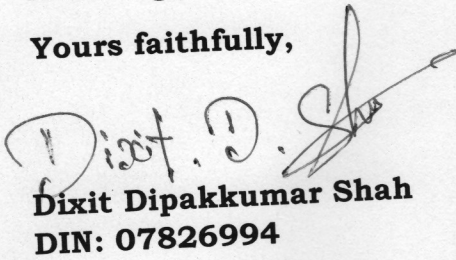 Yours faithfully,
Dixit. D. Shah
Dixit Dipakkumar Shah
DIN: 07826994